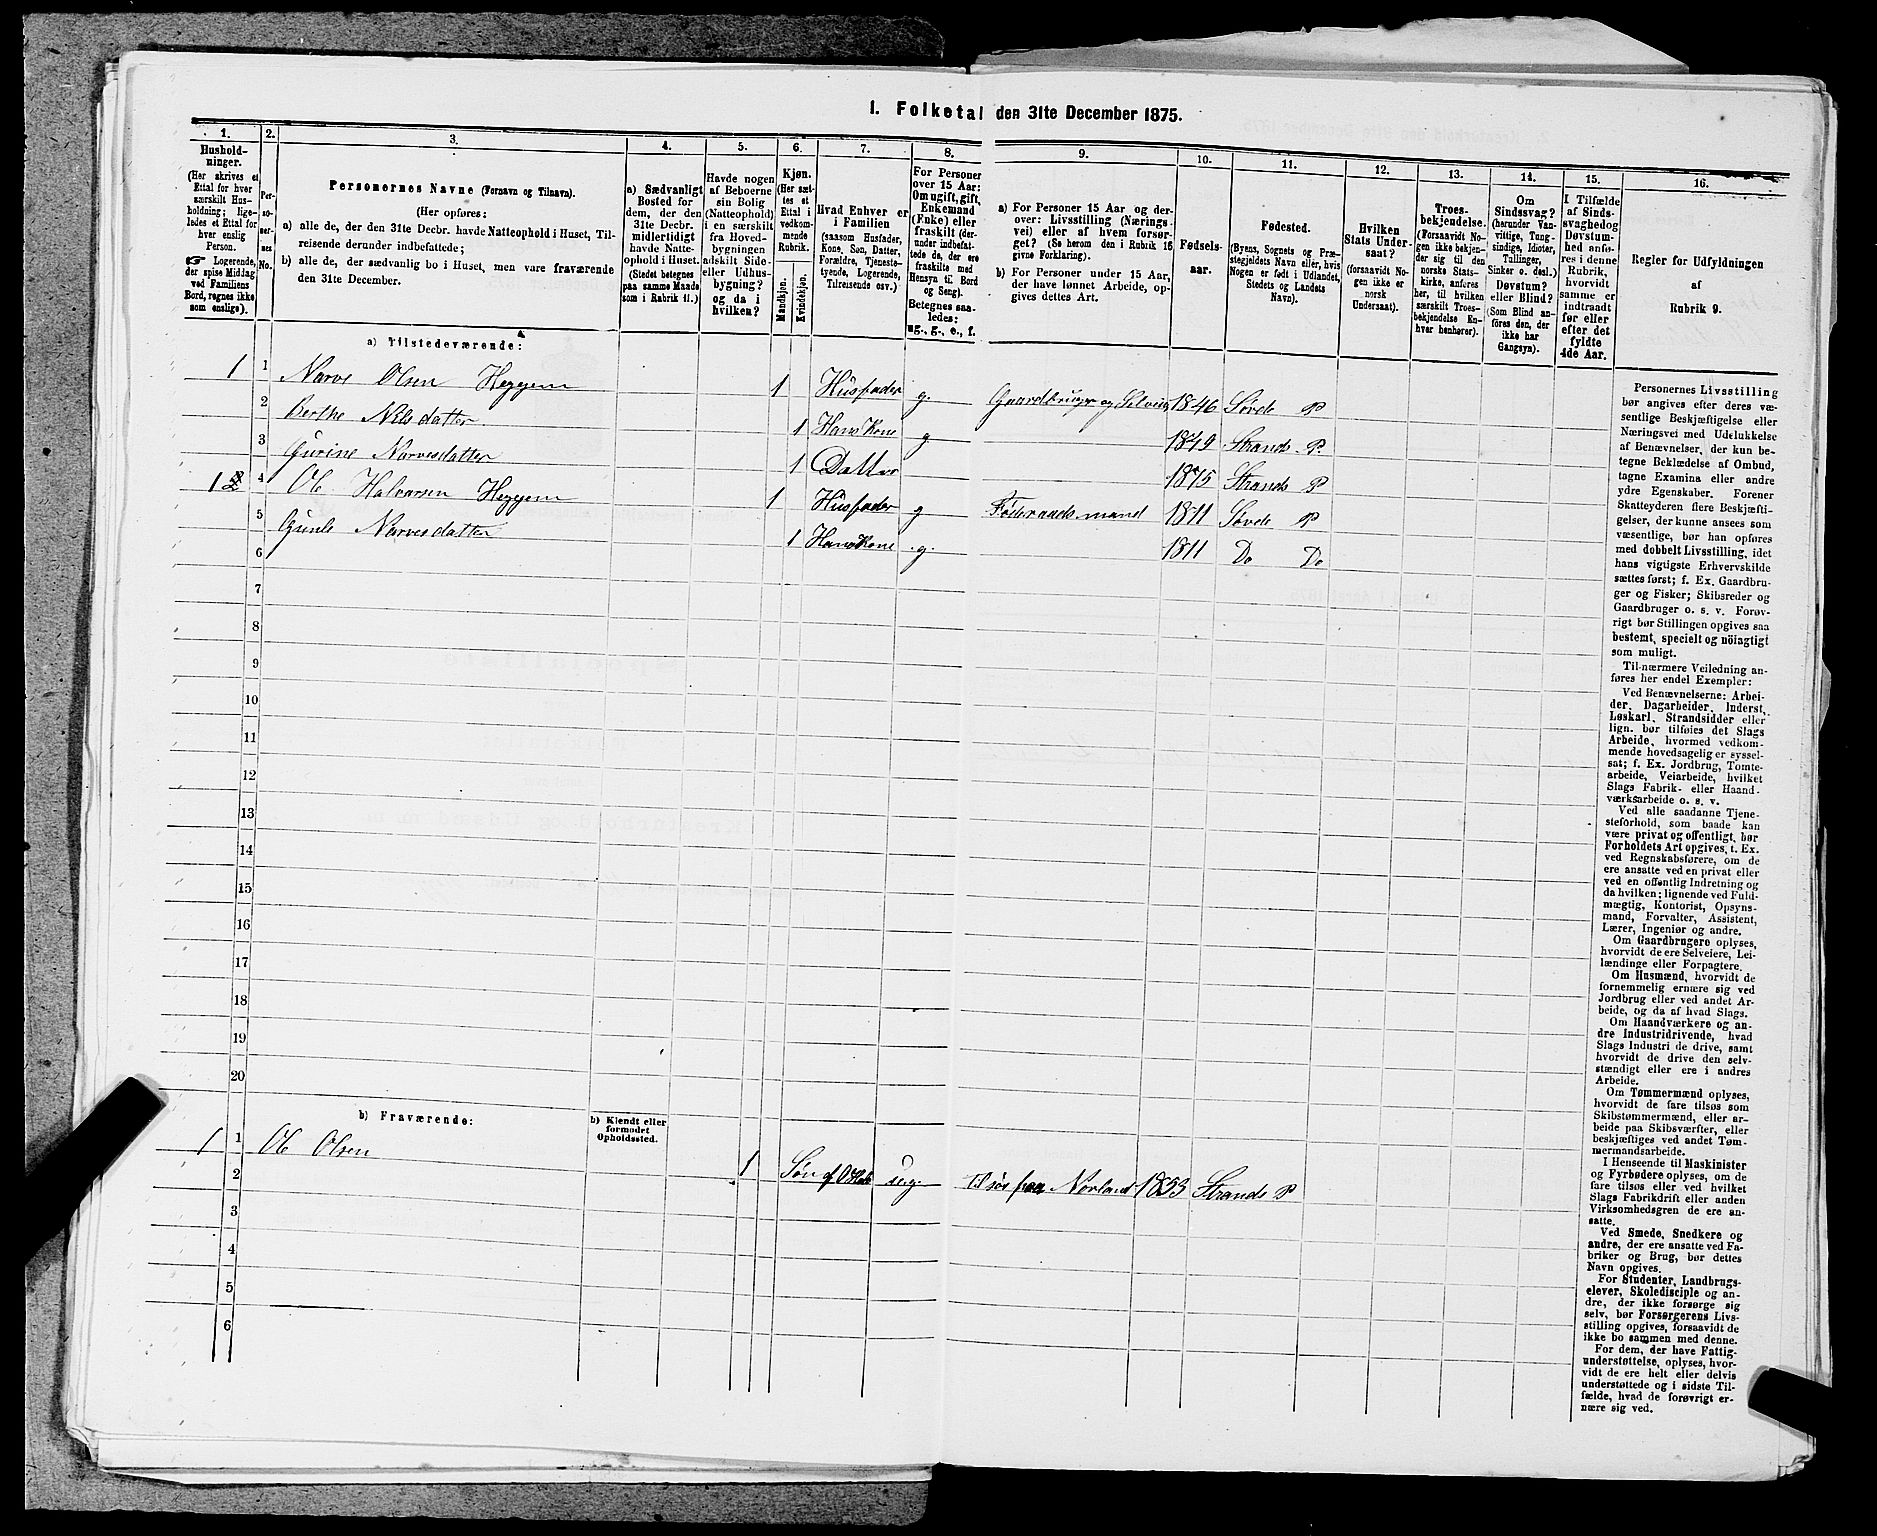 I. Folketal den 31te December 1875.
1. 2. 3. 4. 5. 6. 7. 8. 9. 10. 11. 12. 13. 14. 15. 16.
Hushold-
ninger.
(Her skrives et
Ettal for hver
særskilt Hus-
holdning; lige-
ledes et Ettal for
hver enslig
Person.
☞ Logerende,
der spise Middag
ved Familiens
Bord, regnes ikke
som enslige).
Per-
so-
ner-
nes
No.
Personernes Navne (Fornavn og Tilnavn).
(Her opføres:
a) alle de, der den 31te Decbr. havde Natteophold i Huset, Til-
reisende derunder indbefattede;
b) alle de, der sædvanlig bo i Huset, men vare fraværende
den 31te December.
a) Sædvanligt
Bosted for
dem, der den
31te Decbr.
midlertidigt
havde Natte-
ophold i Huset.
(Stedet betegnes
paa samme Maade
som i Rubrik 11.)
Havde nogen
af Beboerne
sin Bolig
(Natteophold)
i en særskilt
fra Hoved-
bygningen
adskilt Side-
eller Udhus-
bygning?
og da i
hvilken?
Kjøn.
(Her sæt-
tes et
Ettal i
vedkom-
mende
Rubrik.
Mandkjøn.
Kvindekjøn.
Hvad Enhver er
i Familien
(saasom Husfader,
Kone, Søn, Datter,
Forældre, Tjeneste-
tyende, Logerende,
Tilreisende osv.)
For Personer
over 15 Aar:
Om ugift, gift,
Enkemand
(Enke) eller
fraskilt (der-
under indbefat-
tede de, der ere
fraskilte med
Hensyn til Bord
og Seng).
Betegnes saa-
ledes:
ug., g., e., f.
a) For Personer 15 Aar og der-
over: Livsstilling (Nærings-
vei) eller af hvem forsør-
get? (Se herom den i Rubrik 16
givne Forklaring).
b) For Personer under 15 Aar,
der have lønnet Arbeide, op-
gives dettes Art.
Fødsels-
aar.
Fødested.
(Byens, Sognets og Præ-
stegjeldets Navn eller, hvis
Nogen er født i Udlandet,
Stedets og Landets
Navn).
Hvilken
Stats Under-
saat?
(forsaavidt No-
gen ikke er
norsk
Undersaat).
Troes-
bekjendelse.
(Forsaavidt No-
gen ikke bekjen-
der sig til den
norske Stats-
kirke, anføres
her, til hvilken
særskilt Troes-
bekjendelse En-
hver henhører).
Om
Sindssvag?
(herunder Van-
vittige, Tung-
sindige, Idioter,
Tullinger,
Sinker o. desl.)
Døvstum?
eller Blind?
(Som Blind an-
føres den, der
ikke har
Gangsyn).
I Tilfælde
af Sinds-
svaghed
og
Døvstum-
hed anfø-
res i denne
Rubrik,
hvorvidt
samme er
indtraadt
før eller
efter det
fyldte
4de Aar.
Regler for Udfyldningen
af
Rubrik 9.
a) Tilstedeværende:
1 1 Narve Olsen Heggem 1 Husfader g. Gaardbruger og Selveier 1846 Søvde P
2 Berthe Nilsdatter 1 Hans Kone g 1849 Strands P.
3 Gurine Narvesdatter 1 Datter 1875 Strands P
1 4 Ole Halvorsen Heggem 1 Husfader g Føderaadsmand 1811 Søvde P
5 Gunle Narvesdatter 1 Hans Kone .g. 1811 Do Do
6
7
8
9
10
11
12
13
14
15
16
17
18
19
20
b) Fraværende:
b) Kjendt eller
formodet
Opholdssted.
1 1 Ole Olsen 1 Søn af ug. til søs paa Norland 1853 Strands P
2
3
4
5
6
Personernes Livsstilling
bør angives efter deres væ-
sentlige Beskjæftigelse eller
Næringsvei med Udelukkelse
af Benævnelser, der kun be-
tegne Beklædelse af Ombud,
tagne Examina eller andre
ydre Egenskaber. Forener
Skatteyderen flere Beskjæfti-
gelser, der kunne ansees som
væsentlige, bør han opføres
med dobbelt Livsstilling, idet
hans vigtigste Erhvervskilde
sættes først; f. Ex. Gaardbru-
ger og Fisker; Skibsreder og
Gaardbruger o. s. v. Forøv-
rigt bør Stillingen opgives saa
bestemt, specielt og nøiagtigt
som muligt.
Til nærmere Veiledning an-
føres her endel Exempler:
Ved Benævnelserne: Arbei-
der, Dagarbeider, Inderst,
Løskarl, Strandsidder eller
lign. bør tilføies det Slags
Arbeide, hvormed vedkom-
mende hovedsagelig er syssel-
sat; f. Ex. Jordbrug, Tomte-
arbeide, Veiarbeide, hvilket
Slags Fabrik- eller Haand-
værksarbeide o. s. v.
Ved alle saadanne Tjene-
steforhold, som baade kan
være privat og offentligt, bør
Forholdets Art opgives, t. Ex.
ved Regnskabsførere, om de
ere ansatte ved en privat eller
ved en offentlig Indretning og
da hvilken; lignende ved Fuld-
mægtig, Kontorist, Opsyns-
mand, Forvalter, Assistent,
Lærer, Ingeniør og andre.
Om Gaardbrugere oplyses,
hvorvidt de ere Selveiere, Lei-
lændinge eller Forpagtere.
Om Husmænd, hvorvidt de
fornemmelig ernære sig ved
Jordbrug eller ved andet Ar-
beide, og da af hvad Slags.
Om Haandværkere og an-
dre Industridrivende, hvad
Slags Industri de drive, samt
hvorvidt de drive den selv-
stændigt eller ere i andres
Arbeide.
Om Tømmermænd oplyses,
hvorvidt de fare tilsøs som
Skibstømmermænd, eller ar-
beide paa Skibsværfter, eller
beskjæftiges ved andet Tøm-
mermandsarbeide.
I Henseende til Maskinister
og Fyrbødere oplyses, om de
fare tilsøs eller ved hvilket
Slags Fabrikdrift eller anden
Virksomhedsgren de ere an-
satte.
Ved Smede, Snedkere og
andre, der ere ansatte ved Fa-
briker og Brug, bør dettes
Navn opgives.
For Studenter, Landbrugs-
elever, Skoledisciple og an-
dre, der ikke forsørge sig
selv, bør Forsørgerens Livs-
stilling opgives, forsaavidt de
ikke bo sammen med denne.
For dem, der have Fattig-
understøttelse, oplyses, hvor-
vidt de ere helt eller delvis
understøttede og i sidste Til-
fælde, hvad de forøvrigt er-
nære sig ved.